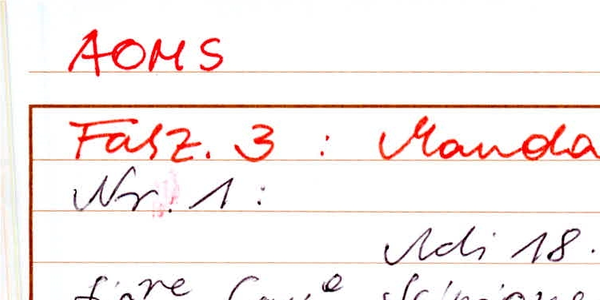 AOMS
Fasz. 3 : Manda
Nr. 1 :
Adi 18.